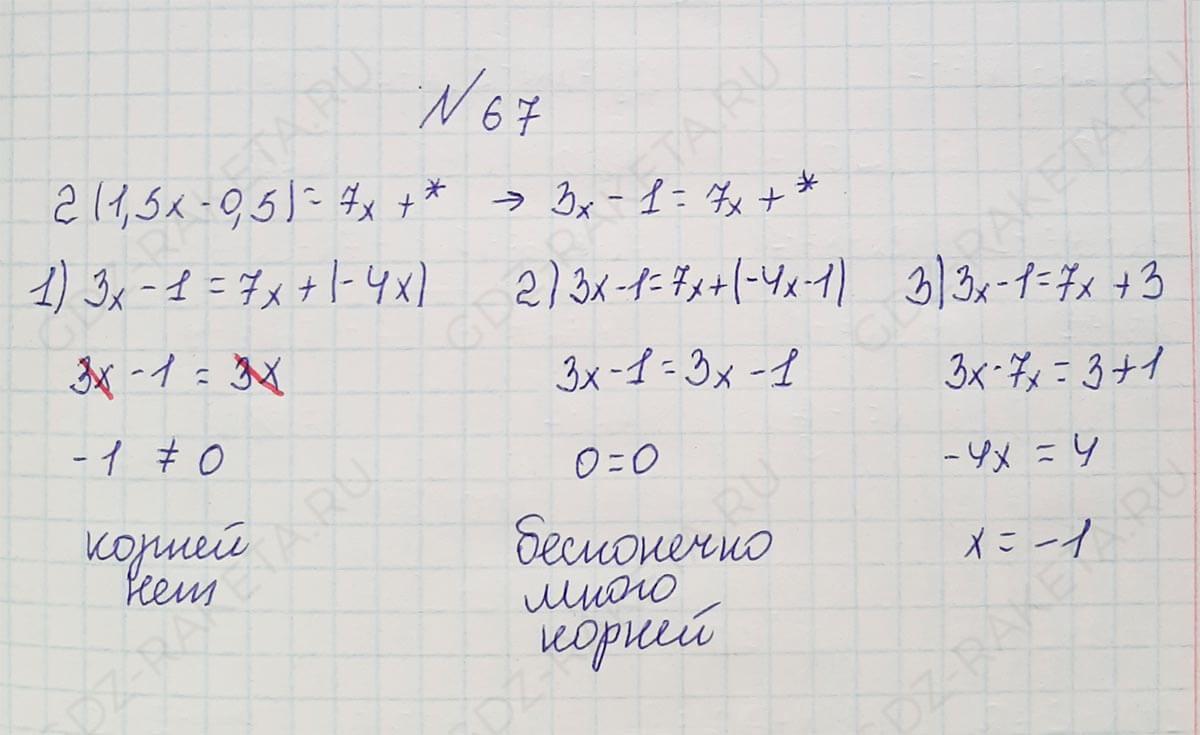 № 67
2(1,5x - 0,5) = 7x + * → 3x - 1 = 7x + *
1) 3x - 1 = 7x + (-4x) 2) 3x - 1 = 7x + (-4x - 1) 3) 3x - 1 = 7x + 3
3x - 1 = 3x 3x - 1 = 3x - 1 3x - 7x = 3 + 1
-1 ≠ 0 0 = 0 -4x = 4
корней бесконечно x = -1
нет много
корней
GDZ-RAKETA.RU
GDZ-RAKETA.RU
GDZ-RAKETA.RU
GDZ-RAKETA.RU
GDZ-RAKETA.RU
GDZ-RAKETA.RU